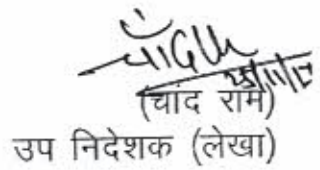 (चांद राम)
उप निदेशक (लेखा)